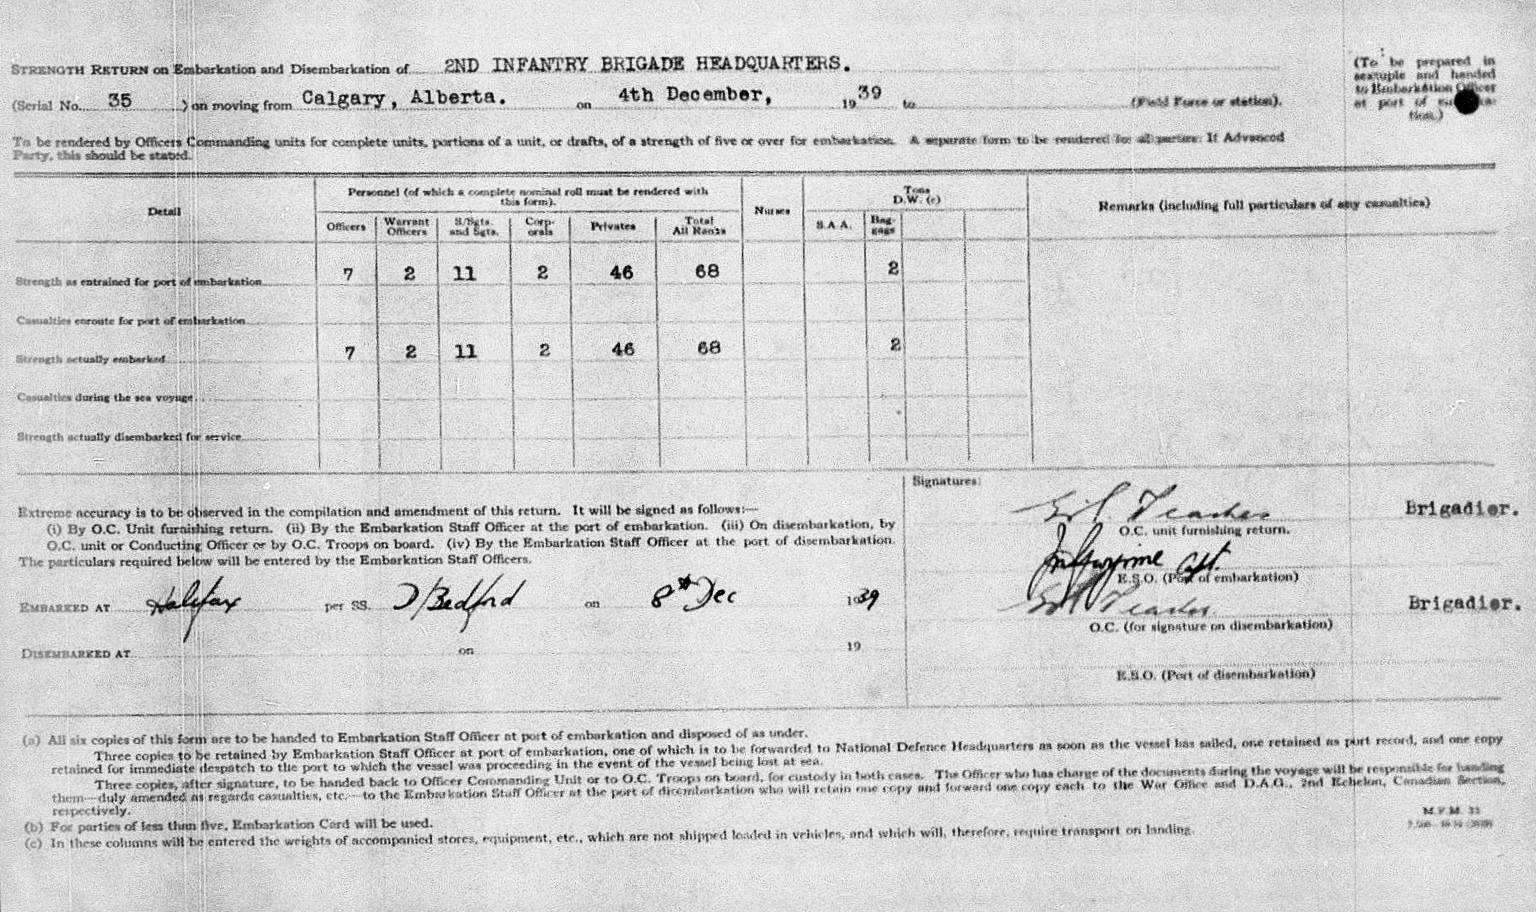 STRENGTH RETURN on Embarkation and Disembarkation of 2ND INFANTRY BRIGADE HEADQUARTERS.
(To be prepared in sextuple and handed to Embarkation Officer at port of tion.)
(Serial No. 35 ) on moving from Calgary, Alberta. on 4th December, 1939 to (Field Force or station).
To be rendered by Officers Commanding units for complete units, portions of a unit, or drafts, of a strength of five or over for embarkation. A separate form to be rendered for all parties. If Advanced
Party, this should be stated.
Detail
Personnel (of which a complete nominal roll must be rendered with
this form).
Nurses
Tons
D.W. (c)
Remarks (including full particulars of any casualties)
Officers Warrant Officers S/Sgts. and Sgts. Corp- orals Privates Total All Ranks S.A.A. Bag- gage
Strength as entrained for port of embarkation 7 2 11 2 46 68 2
Casualties enroute for port of embarkation
Strength actually embarked 7 2 11 2 46 68 2
Casualties during the sea voyage
Strength actually disembarked for service
Signatures:
Extreme accuracy is to be observed in the compilation and amendment of this return. It will be signed as follows:—
(i) By O.C. Unit furnishing return. (ii) By the Embarkation Staff Officer at the port of embarkation. (iii) On disembarkation, by
O.C. unit or Conducting Officer or by O.C. Troops on board. (iv) By the Embarkation Staff Officer at the port of disembarkation.
The particulars required below will be entered by the Embarkation Staff Officers.
Brigadier.
O.C. unit furnishing return.
Capt.
E.S.O. (Port of embarkation)
EMBARKED AT Halifax per SS. D/Bedford on 8th Dec 1939
Brigadier.
O.C. (for signature on disembarkation)
DISEMBARKED AT on 19
E.S.O. (Port of disembarkation)
(a) All six copies of this form are to be handed to Embarkation Staff Officer at port of embarkation and disposed of as under.
Three copies to be retained by Embarkation Staff Officer at port of embarkation, one of which is to be forwarded to National Defence Headquarters as soon as the vessel has sailed, one retained as port record, and one copy
retained for immediate despatch to the port to which the vessel was proceeding in the event of the vessel being lost at sea.
Three copies, after signature, to be handed back to Officer Commanding Unit or to O.C. Troops on board, for custody in both cases. The Officer who has charge of the documents during the voyage will be responsible for handing
them—duly amended as regards casualties, etc.—to the Embarkation Staff Officer at the port of disembarkation who will retain one copy and forward one copy each to the War Office and D.A.G., 2nd Echelon, Canadian Section,
respectively.
(b) For parties of less than five, Embarkation Card will be used.
(c) In these columns will be entered the weights of accompanied stores, equipment, etc., which are not shipped loaded in vehicles, and which will, therefore, require transport on landing.
M.F.M. 33